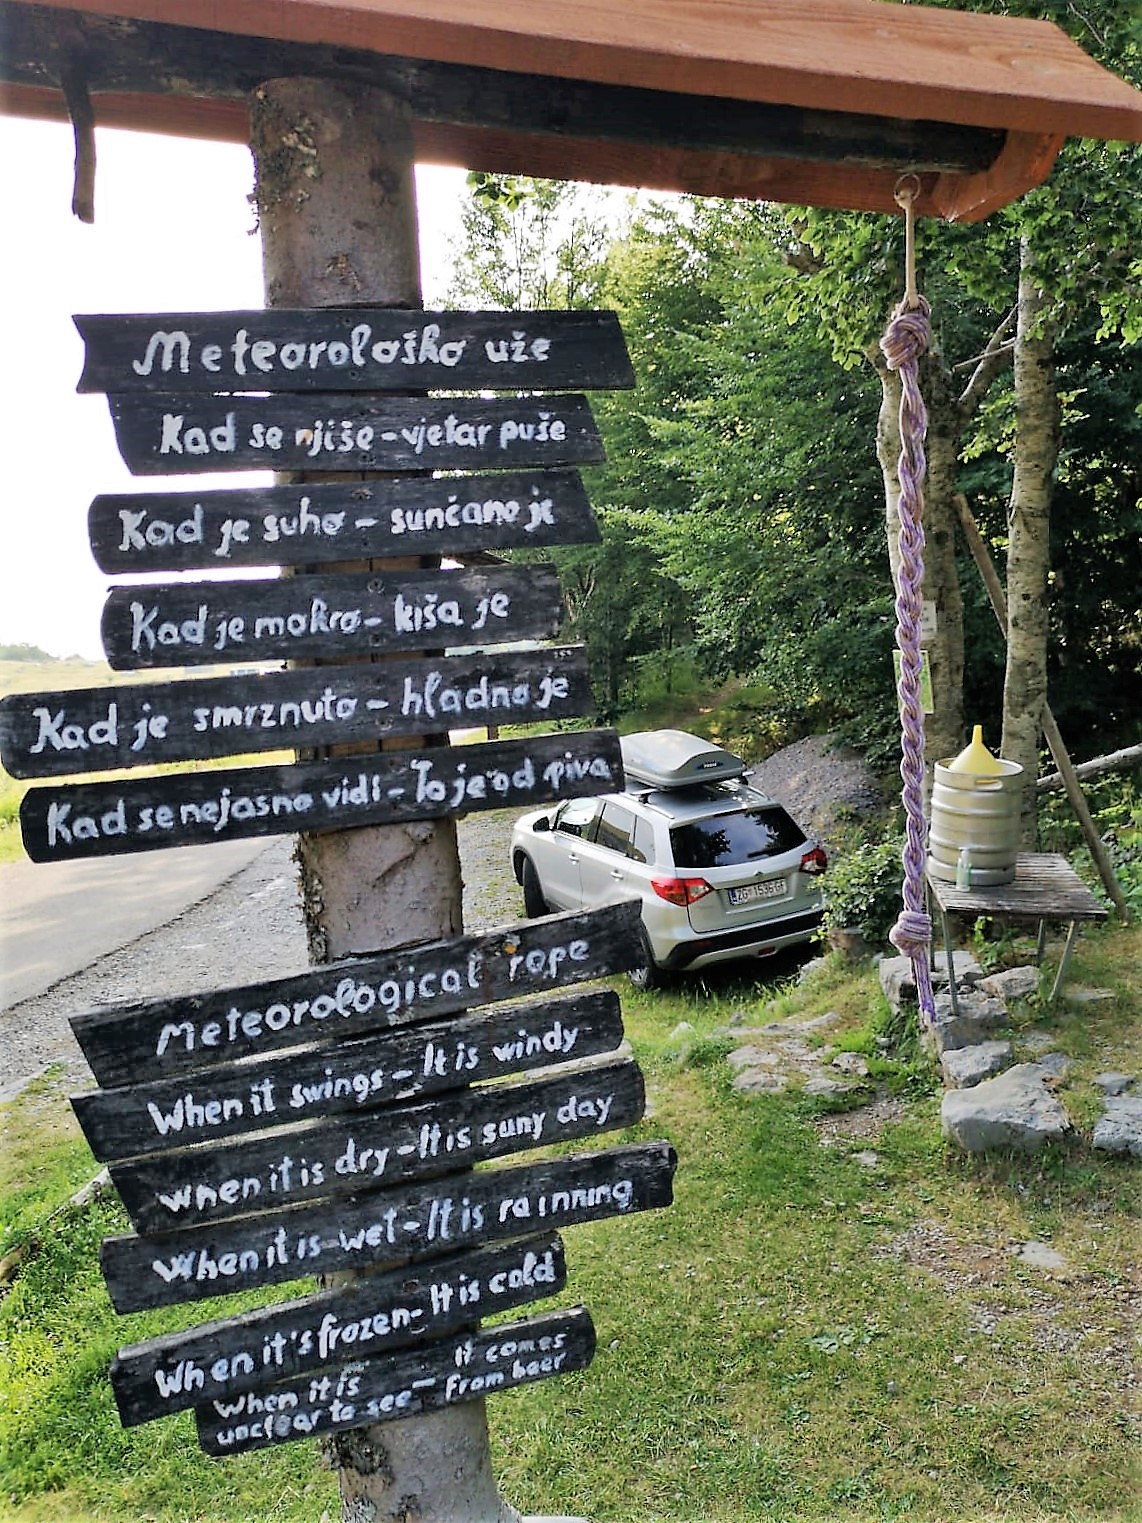 Meteorološko uže
Kad se njiše - vjetar puše
Kad je suho - sunčano je
Kad je mokro - kiša je
Kad je smrznuto - hladno je
Kad se nejasno vidi - To je od piva
Meteorological rope
When it swings - It is windy
When it is dry - It is suny day
When it is wet - It is rainning
When it's frozen - It is cold
When it is
unclear to see - it comes
from beer
ZG 1536-GF